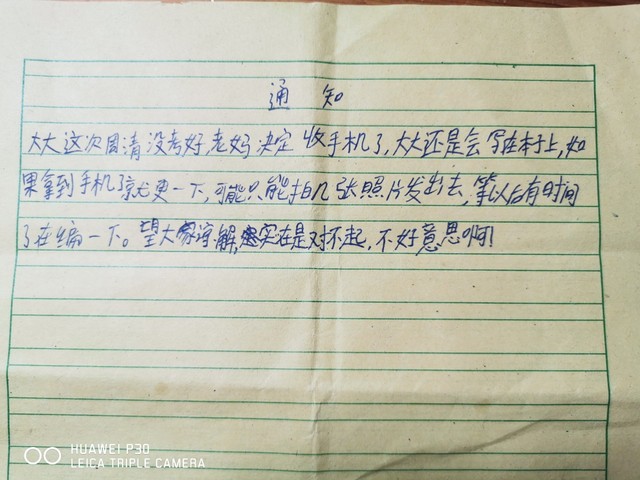 通知
大大这次周清没考好,老妈决定收手机了,大大还是会写在本子上,如
果拿到手机了就更一下,可能只能拍几张照片发出去,等以后有时间
了在编一下。望大家谅解,实在是对不起,不好意思啊!
HUAWEI P30
LEICA TRIPLE CAMERA